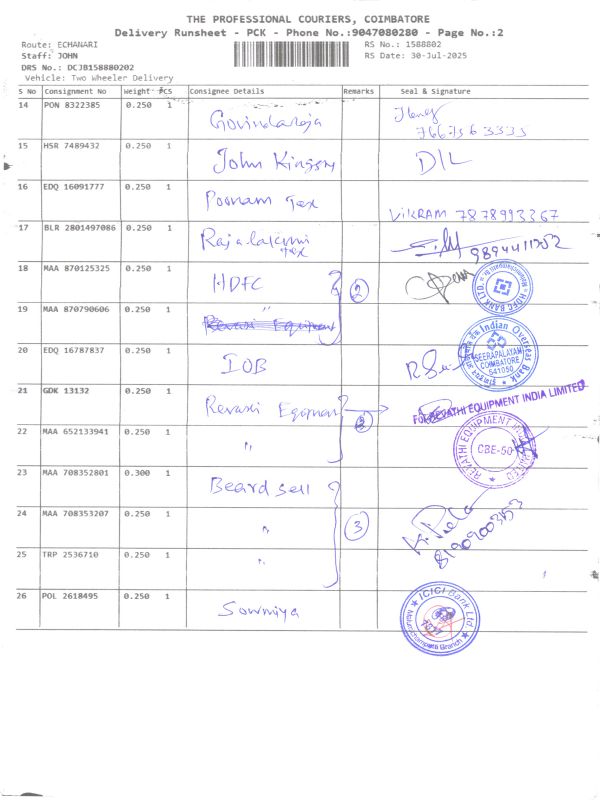 THE PROFESSIONAL COURIERS, COIMBATORE
Delivery Runsheet - PCK - Phone No.:9047080280 - Page No.:2
Route: ECHANARI RS No.: 1588802
Staff: JOHN RS Date: 30-Jul-2025
DRS No.: DCJB158880202
Vehicle: Two Wheeler Delivery
S No Consignment No Weight PCS Consignee Details Remarks Seal & Signature
14 PON 8322385 0.250 1 Govindaraja
7667563333
15 HSR 7489432 0.250 1 John Kingsny D/L
16 EDQ 16091777 0.250 1 Poonam Tex VIKRAM 7878993367
17 BLR 2801497086 0.250 1 Rajalakshmi Tex 9894411752
18 MAA 870125325 0.250 1 HDFC 2 HDFC BANK LTD
19 MAA 870790606 0.250 1 " Revasi Equipment
20 EDQ 16787837 0.250 1 IOB Indian Overseas Bank
SEERAPALAYAM
COIMBATORE
641050
21 GDK 13132 0.250 1 Revasi Equipment FOR REVATHI EQUIPMENT INDIA LIMITED
22 MAA 652133941 0.250 1 " REVATHI EQUIPMENT INDIA LIMITED
CBE-50
23 MAA 708352801 0.300 1 Beardsell
24 MAA 708353207 0.250 1 " 3 8190900353
25 TRP 2536710 0.250 1 "
26 POL 2618495 0.250 1 Sowmiya ICICI Bank Ltd
Malumichampatti Branch